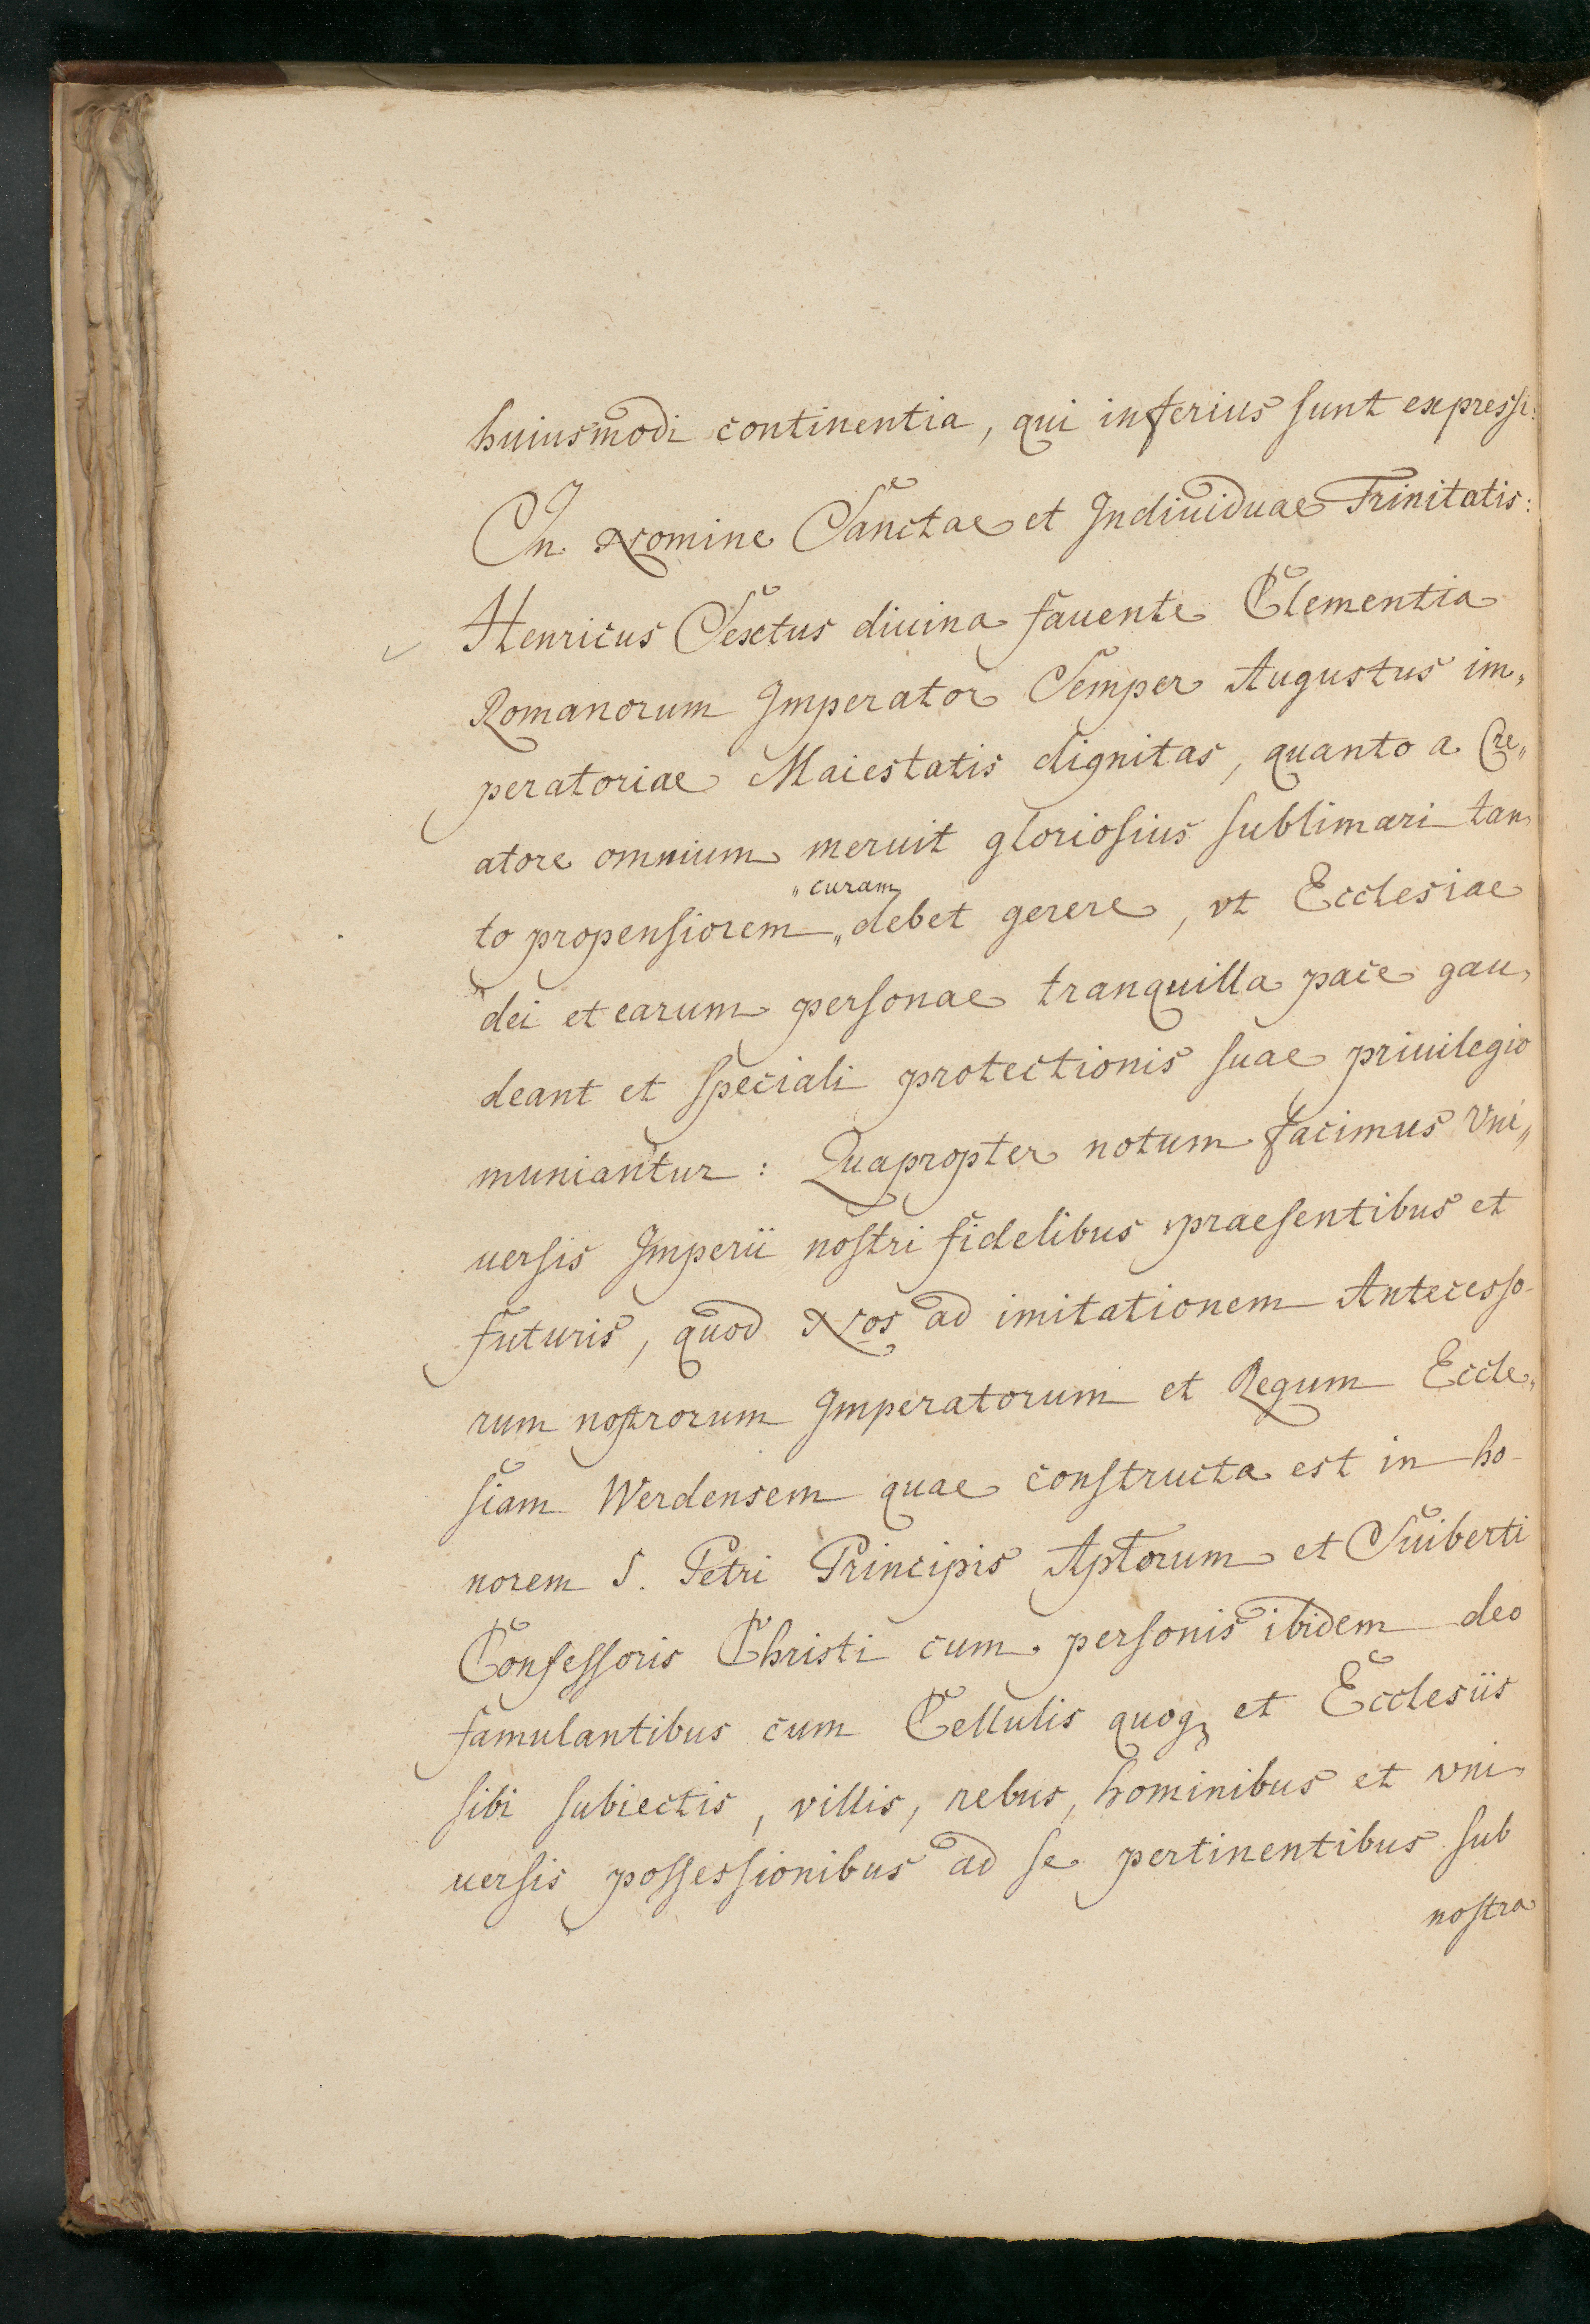 huiusmodi continentia, qui inferius sunt expressi:
In Nomine Sanctae et Indiuiduae Trinitatis:
Henricus Sextus diuina fauente Clementia
Romanorum Imperator Semper Augustus im„
peratoriae Maiestatis dignitas, quanto a Cre„
atore omnium meruit gloriosius sublimari tan„
„curam
to propensiorem „debet gerere, vt Ecclesiae
dei et earum personae tranquilla pace gau„
deant et speciali protectionis suae priuilegio
muniantur: Quapropter notum facimus Vni„
uersis Imperii nostri fidelibus praesentibus et
futuris, quod Nos ad imitationem Antecesso-
rum nostrorum Imperatorum et Regum Eccle„
siam Werdensem quae constructa est in ho-
norem S. Petri Principis Aptorum et Suiberti
Confessoris Christi cum personis ibidem deo
famulantibus cum Cellulis quoqꝫ et Ecclesiis
sibi subiectis, villis, rebus, hominibus et vni„
uersis possessionibus ad se pertinentibus sub
nostra